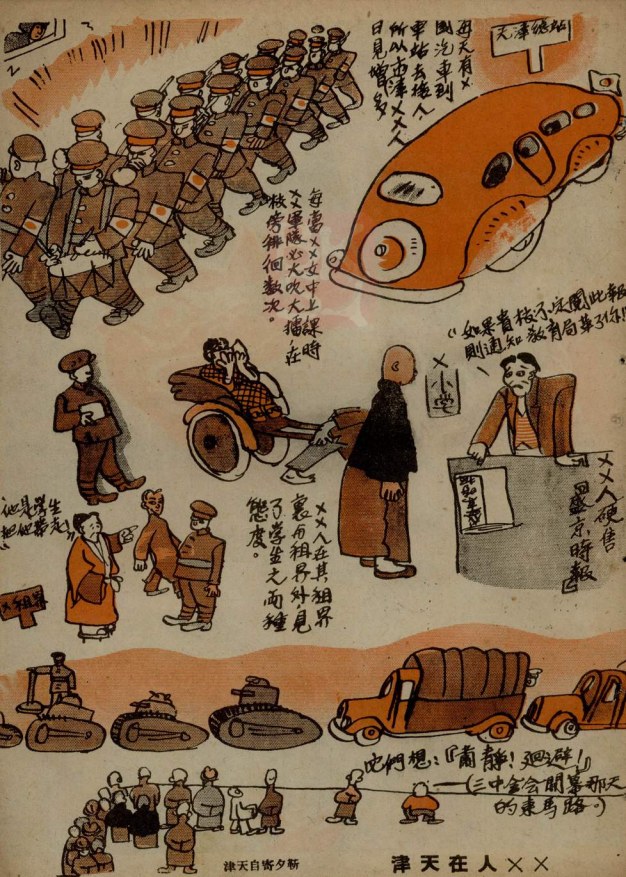 天津總站
每天有×
國汽車到
車站去接人
所以來津××人
日見增多
每當××女中上課時
××軍隊必大吹大擂在
校旁徘徊數次。
“如果貴校不定閱此報
則通知教育局革了你!”
×小学
××人硬售
『盛京時報』
盛京時報
“他是學生
把他帶走!”
××人在其租界
裏与租界外,見
了學生之兩種
態度。
×租界
他們想:『肅靜!迴避!』
——(三中全会開幕那天
的東馬路。)
××人在天津
靳夕寄自天津